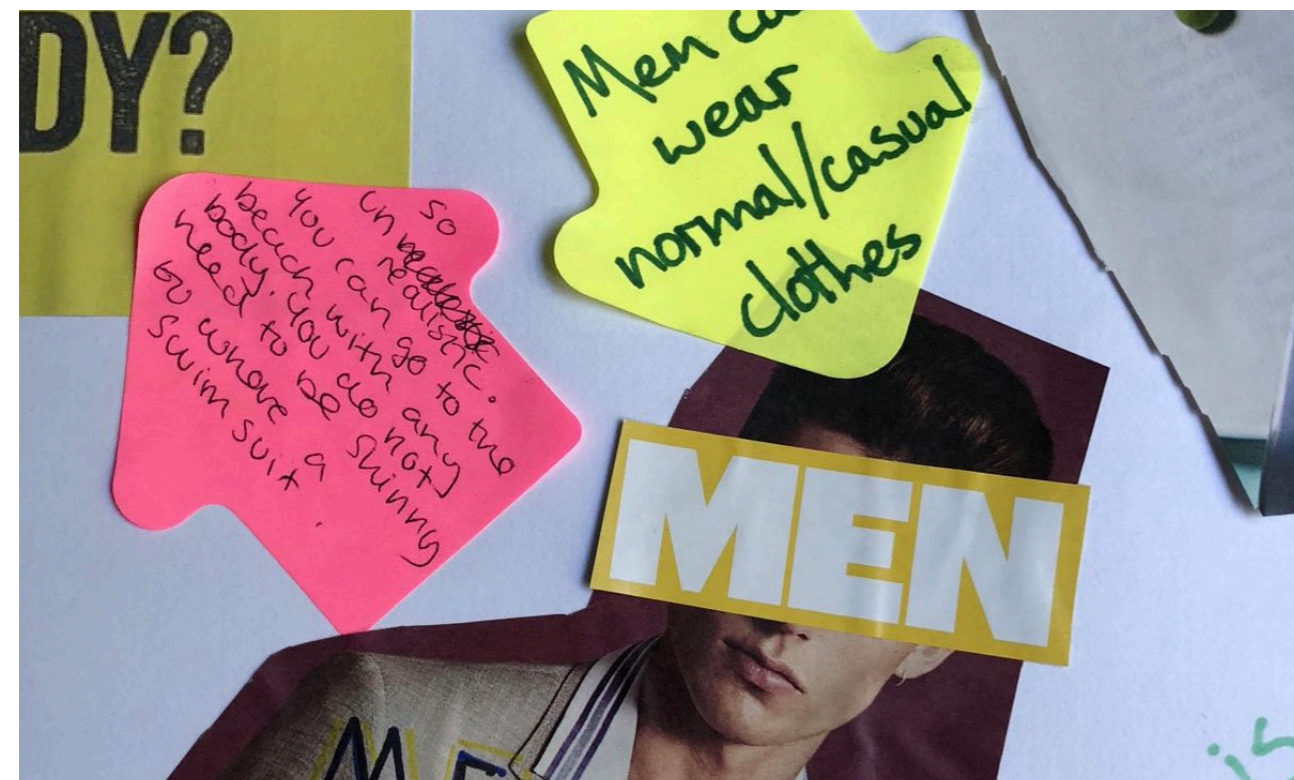 DY?
so
unrealistic.
you can go to the
beach with any
body. you do not
need to be skinny
to whare a
swim suit
Men
wear
normal/casual
clothes
MEN